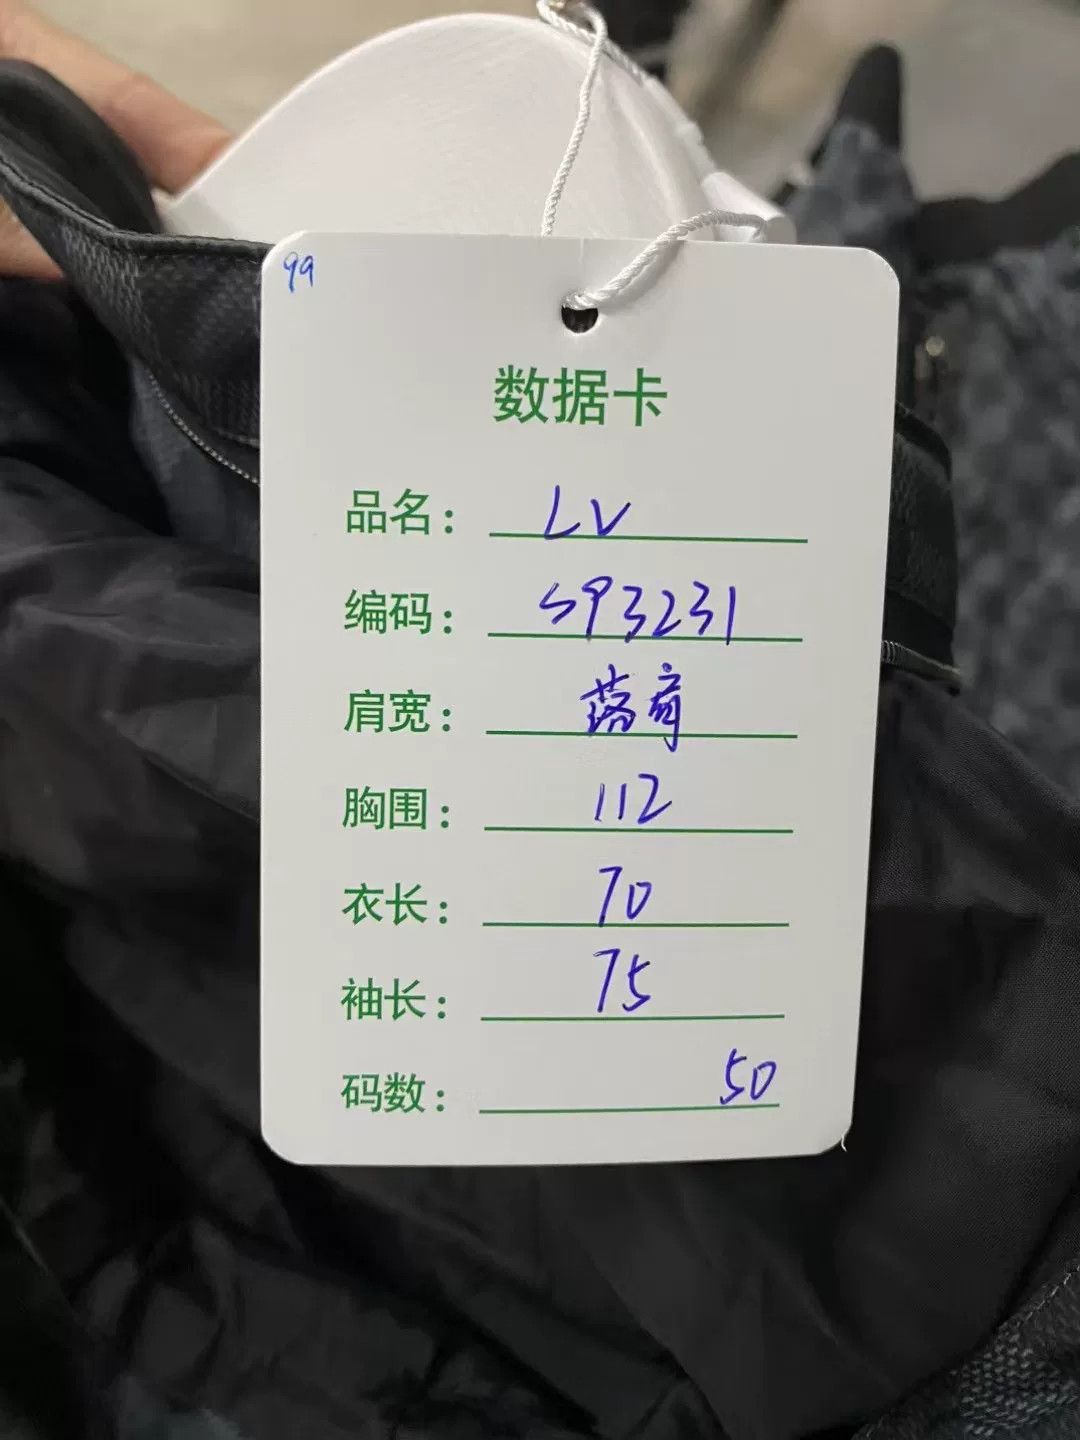 99
数据卡
品名： LV
编码： SP3231
肩宽： 落肩
胸围： 112
衣长： 70
袖长： 75
码数： 50